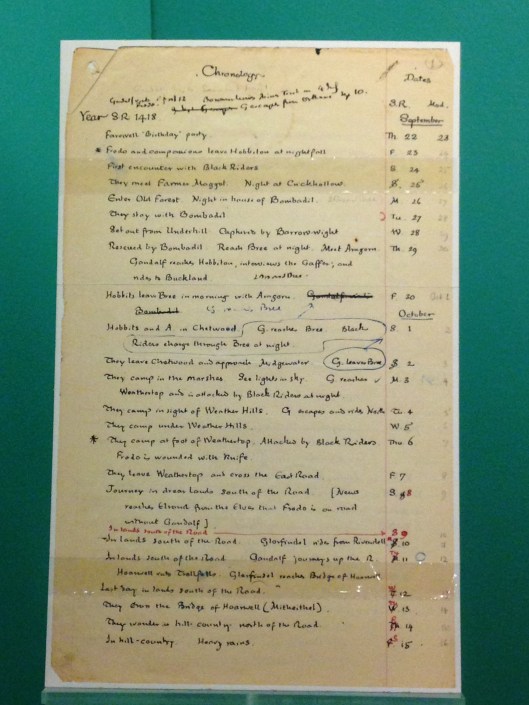 Chronology
Dates
S.R. Mod.
Year S.R 1418
September
Farewell 'Birthday' party Th 22 23
* Frodo and companions leave Hobbiton at nightfall F 23
First encounter with Black Riders S. 24
They meet Farmer Maggot. Night at Crickhollow. S. 25
Enter Old Forest. Night in house of Bombadil. M 26
They stay with Bombadil Tu. 27
Set out from Underhill. Captured by Barrow-wight W. 28
Rescued by Bombadil. Reach Bree at night. Meet Aragorn. Th. 29
Gandalf reaches Hobbiton, interviews the Gaffer, and
rides to Buckland
Hobbits leave Bree in morning with Aragorn. F. 30
October
Hobbits and A. in Chetwood G. reaches Bree. Black S. 1
Riders charge through Bree at night.
They leave Chetwood and approach Midgewater G. leaves Bree S 2
They camp in the marshes. See lights in sky. G reaches M. 3
Weathertop and is attacked by Black Riders at night
They camp in sight of Weather Hills. G escapes and rides North Tu 4
They camp under Weather Hills. W. 5
* They camp at foot of Weathertop. Attacked by Black Riders Thu 6
Frodo is wounded with knife
They leave Weathertop and cross the East Road. F 7
Journey in drear lands south of the Road. [News S. 8
reaches Elrond from the Elves that Frodo is on road
without Gandalf]
In lands south of the Road S 9
In lands south of the Road. Glorfindel rides from Rivendell 10
In lands south of the Road Gandalf journeys up the R 11
Hoarwell into Trollfells. Glorfindel reaches Bridge of Hoarwell
Last day in lands south of the Road. 12
They cross the Bridge of Hoarwell (Mitheithel) 13
They wander in hill-country north of the Road. 14
In hill-country. Heavy rains. 15